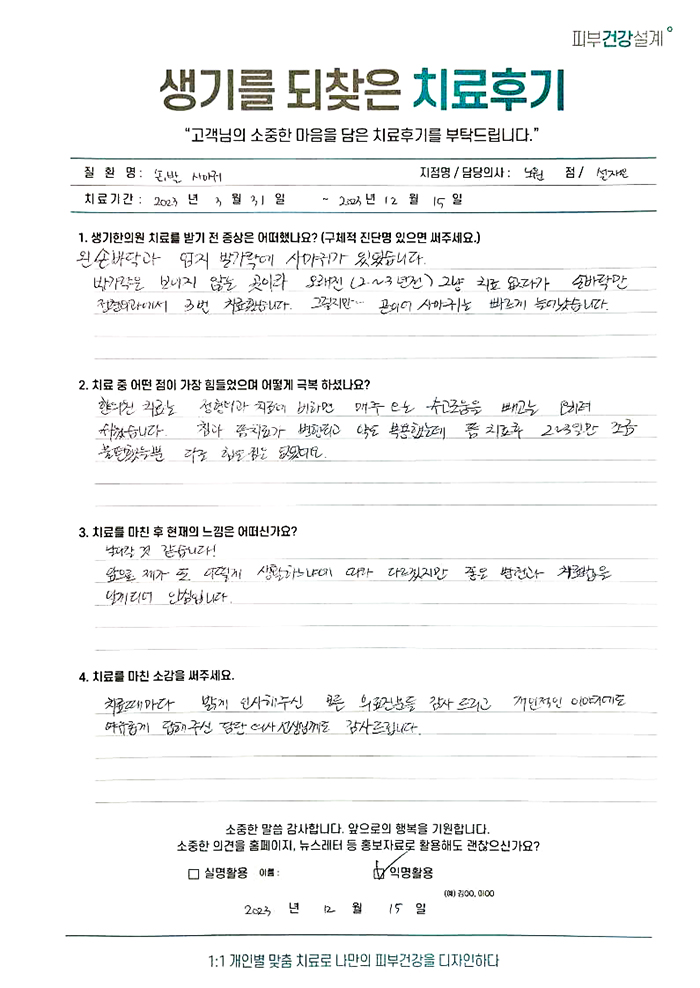 피부건강설계
생기를 되찾은 치료후기
"고객님의 소중한 마음을 담은 치료후기를 부탁드립니다."
질 환 명 : 손,발 사마귀 지점명 / 담당의사 : 노원 점 /
치료기간 : 2023 년 3 월 31 일 ~ 2023 년 12 월 15 일
1. 생기한의원 치료를 받기 전 증상은 어떠했나요? (구체적 진단명 있으면 써주세요.)
왼 손바닥과 엄지 발가락에 사마귀가 있었습니다.
발가락은 보이지 않는 곳이라 오래전 (2~3년전) 그냥 치료 없다가 손바닥만
피부과에서 3번 치료했습니다. 그렇지만… 사마귀는 빠르게 늘어났습니다.
2. 치료 중 어떤 점이 가장 힘들었으며 어떻게 극복 하셨나요?
한의원 치료는 치료에 비하면 매주 오는 수고로움을 빼고는
쉬웠습니다. 침과 뜸치료가 병행되고 약도 복용했는데 뜸 치료후 2~3일만 조금
불편했을뿐 다른 힘든 점은 없었어요.
3. 치료를 마친 후 현재의 느낌은 어떠신가요?
날아갈 것 같습니다!
앞으로 제가 또 어떻게 생활하느냐에 따라 다르겠지만 좋은 병원과 치료법을
4. 치료를 마친 소감을 써주세요.
치료때마다 밝게 인사해주신 모든 의료진분들 감사 드리고 개인적인 이야기에도
답해주신 담당 의사 선생님께도 감사드립니다.
소중한 말씀 감사합니다. 앞으로의 행복을 기원합니다.
소중한 의견을 홈페이지, 뉴스레터 등 홍보자료로 활용해도 괜찮으신가요?
실명활용 이름 : 익명활용
(예) 김OO, 이OO
2023 년 12 월 15 일
1:1 개인별 맞춤 치료로 나만의 피부건강을 디자인하다